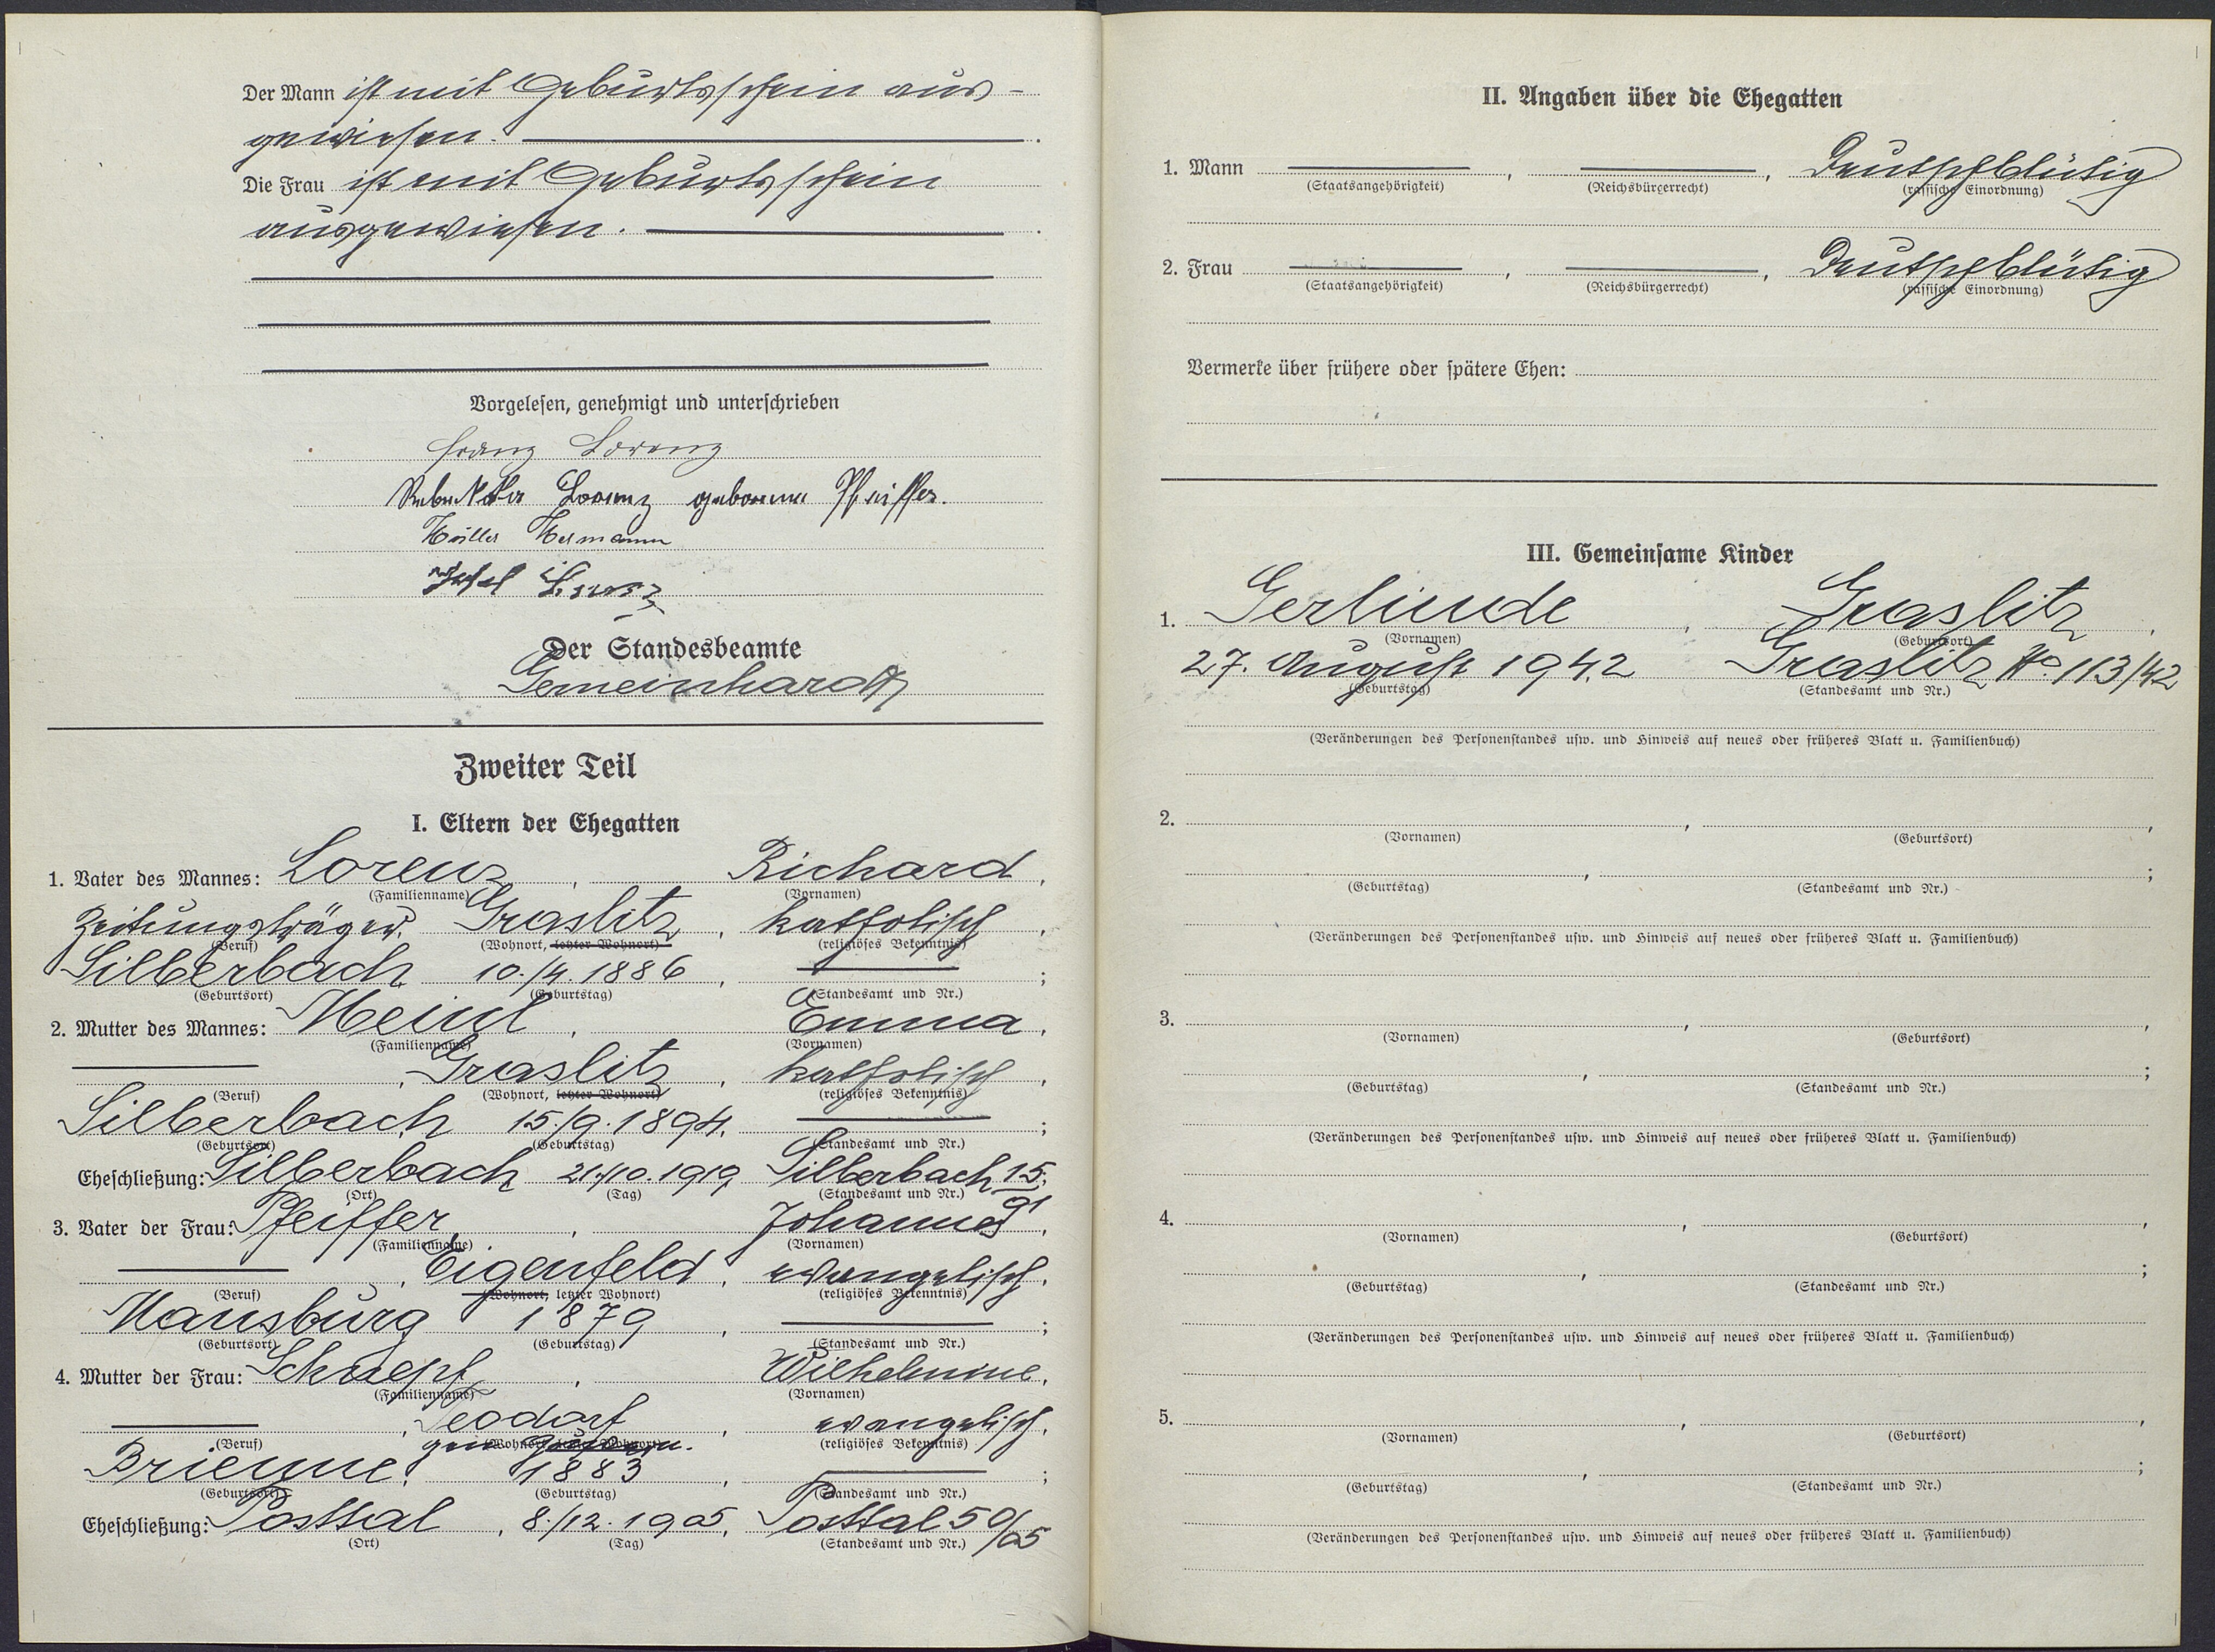 Der Mann ist mit Geburtsschein aus-
gewiesen.
Die Frau ist mit Geburtsschein
ausgewiesen.
Vorgelesen, genehmigt und unterschrieben
Franz Lorenz
Lorenz geborene Pfeiffer.
Hermann
Lorenz
Der Standesbeamte
Gemeinhardt
Zweiter Teil
I. Eltern der Ehegatten
1. Vater des Mannes: Lorenz, Richard,
(Familienname) (Vornamen)
Zeitungsträger, Graslitz, katholisch,
(Beruf) (Wohnort, letzter Wohnort) (religiöses Bekenntnis)
Silberbach 10./4. 1886, ;
(Geburtsort) (Geburtstag) (Standesamt und Nr.)
2. Mutter des Mannes: Meinl, Emma,
(Familienname) (Vornamen)
, Graslitz, katholisch,
(Beruf) (Wohnort, letzter Wohnort) (religiöses Bekenntnis)
Silberbach, 15./9. 1894, ;
(Geburtsort) (Geburtstag) (Standesamt und Nr.)
Eheschließung: Silberbach, 21./10. 1919, Silberbach 15.
(Ort) (Tag) (Standesamt und Nr.) 91
3. Vater der Frau: Pfeiffer, Johannes,
(Familienname) (Vornamen)
, Eigenfeld, evangelisch,
(Beruf) (Wohnort, letzter Wohnort) (religiöses Bekenntnis)
Mansburg 1879, ;
(Geburtsort) (Geburtstag) (Standesamt und Nr.)
4. Mutter der Frau: Schaepf, Wilhelmine,
(Familienname) (Vornamen)
, evangelisch,
(Beruf) (Wohnort, letzter Wohnort) (religiöses Bekenntnis)
Brienne, 1883, ;
(Geburtsort) (Geburtstag) (Standesamt und Nr.)
Eheschließung: Posttal, 8./12. 1905, Posttal 50/05
(Ort) (Tag) (Standesamt und Nr.)
II. Angaben über die Ehegatten
1. Mann , , Deutschblütig
(Staatsangehörigkeit) (Reichsbürgerrecht) (rassische Einordnung)
2. Frau , , Deutschblütig
(Staatsangehörigkeit) (Reichsbürgerrecht) (rassische Einordnung)
Vermerke über frühere oder spätere Ehen:
III. Gemeinsame Kinder
1. Gerlinde, Graslitz,
(Vornamen) (Geburtsort)
27. August 1942 Graslitz No 113/42
(Geburtstag) (Standesamt und Nr.)
(Veränderungen des Personenstandes usw. und Hinweis auf neues oder früheres Blatt u. Familienbuch)
2. , ,
(Vornamen) (Geburtsort)
, ;
(Geburtstag) (Standesamt und Nr.)
(Veränderungen des Personenstandes usw. und Hinweis auf neues oder früheres Blatt u. Familienbuch)
3. , ,
(Vornamen) (Geburtsort)
, ;
(Geburtstag) (Standesamt und Nr.)
(Veränderungen des Personenstandes usw. und Hinweis auf neues oder früheres Blatt u. Familienbuch)
4. , ,
(Vornamen) (Geburtsort)
, ;
(Geburtstag) (Standesamt und Nr.)
(Veränderungen des Personenstandes usw. und Hinweis auf neues oder früheres Blatt u. Familienbuch)
5. , ,
(Vornamen) (Geburtsort)
, ;
(Geburtstag) (Standesamt und Nr.)
(Veränderungen des Personenstandes usw. und Hinweis auf neues oder früheres Blatt u. Familienbuch)